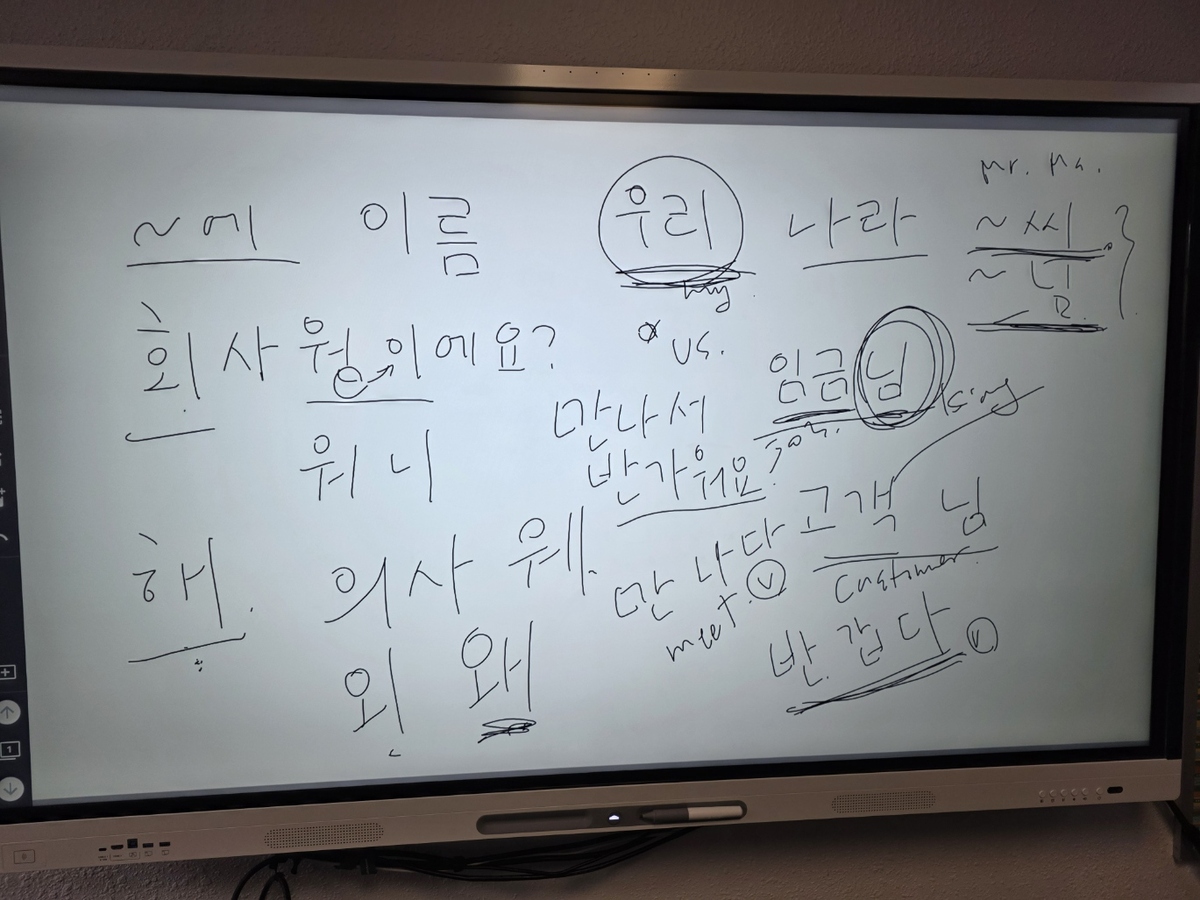 Mr. Ms.
~에 이름 우리 나라 ~씨
my ~님
회사원이에요? vs. 임금님
king
만나서
워니 반가워요
고객님
해 의사 웨 만나다 v customer
meet
외 왜 반갑다 v
1